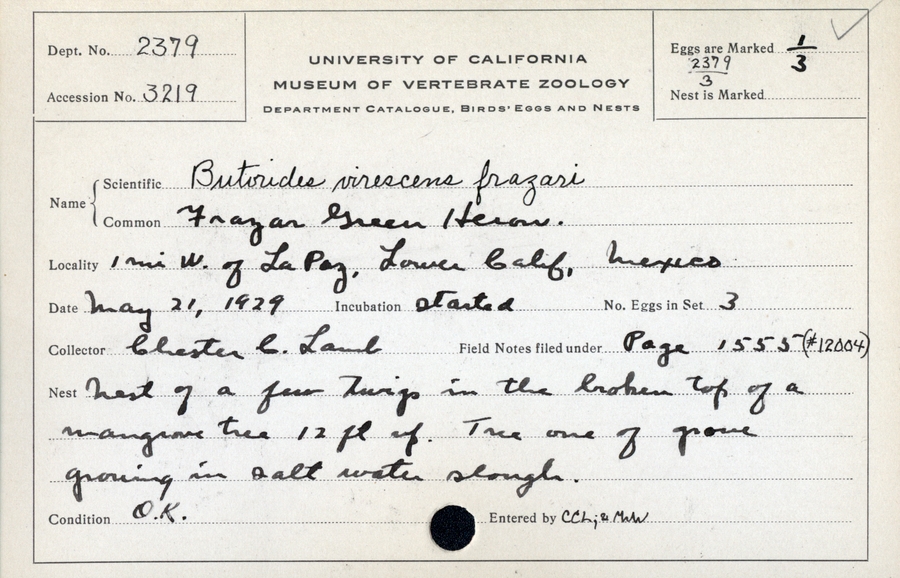 Dept. No. 2379
Accession No. 3219
UNIVERSITY OF CALIFORNIA
MUSEUM OF VERTEBRATE ZOOLOGY
DEPARTMENT CATALOGUE, BIRDS' EGGS AND NESTS
Eggs are Marked 1/3
2379/3
Nest is Marked
Name
Scientific Butorides virescens frazari
Common Frazar Green Heron.
Locality 1 mi W. of La Paz, Lower Calif, Mexico
Date May 21, 1929 Incubation started No. Eggs in Set 3
Collector Chester C. Lamb Field Notes filed under Page 1555 (#12004)
Nest Nest of a few twigs in the broken top of a
mangrove tree 12 ft up. Tree one of grove
growing in salt water slough.
Condition O.K. Entered by CCL; & MWW